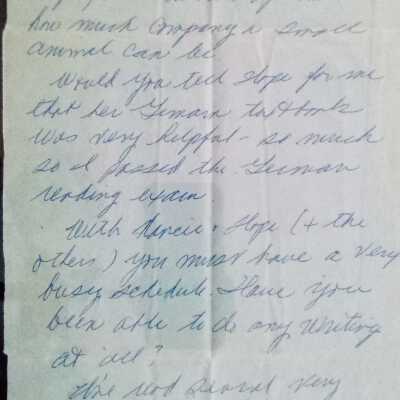 how much company a small
animal can be
Would you tell Hope for me
that her German textbook
was very helpful - so much
so I passed the German
reading exam.
With Marcie & Hope (+ the
others) you must have a very
busy schedule. Have you
been able to do any writing
at all?
We've had several very